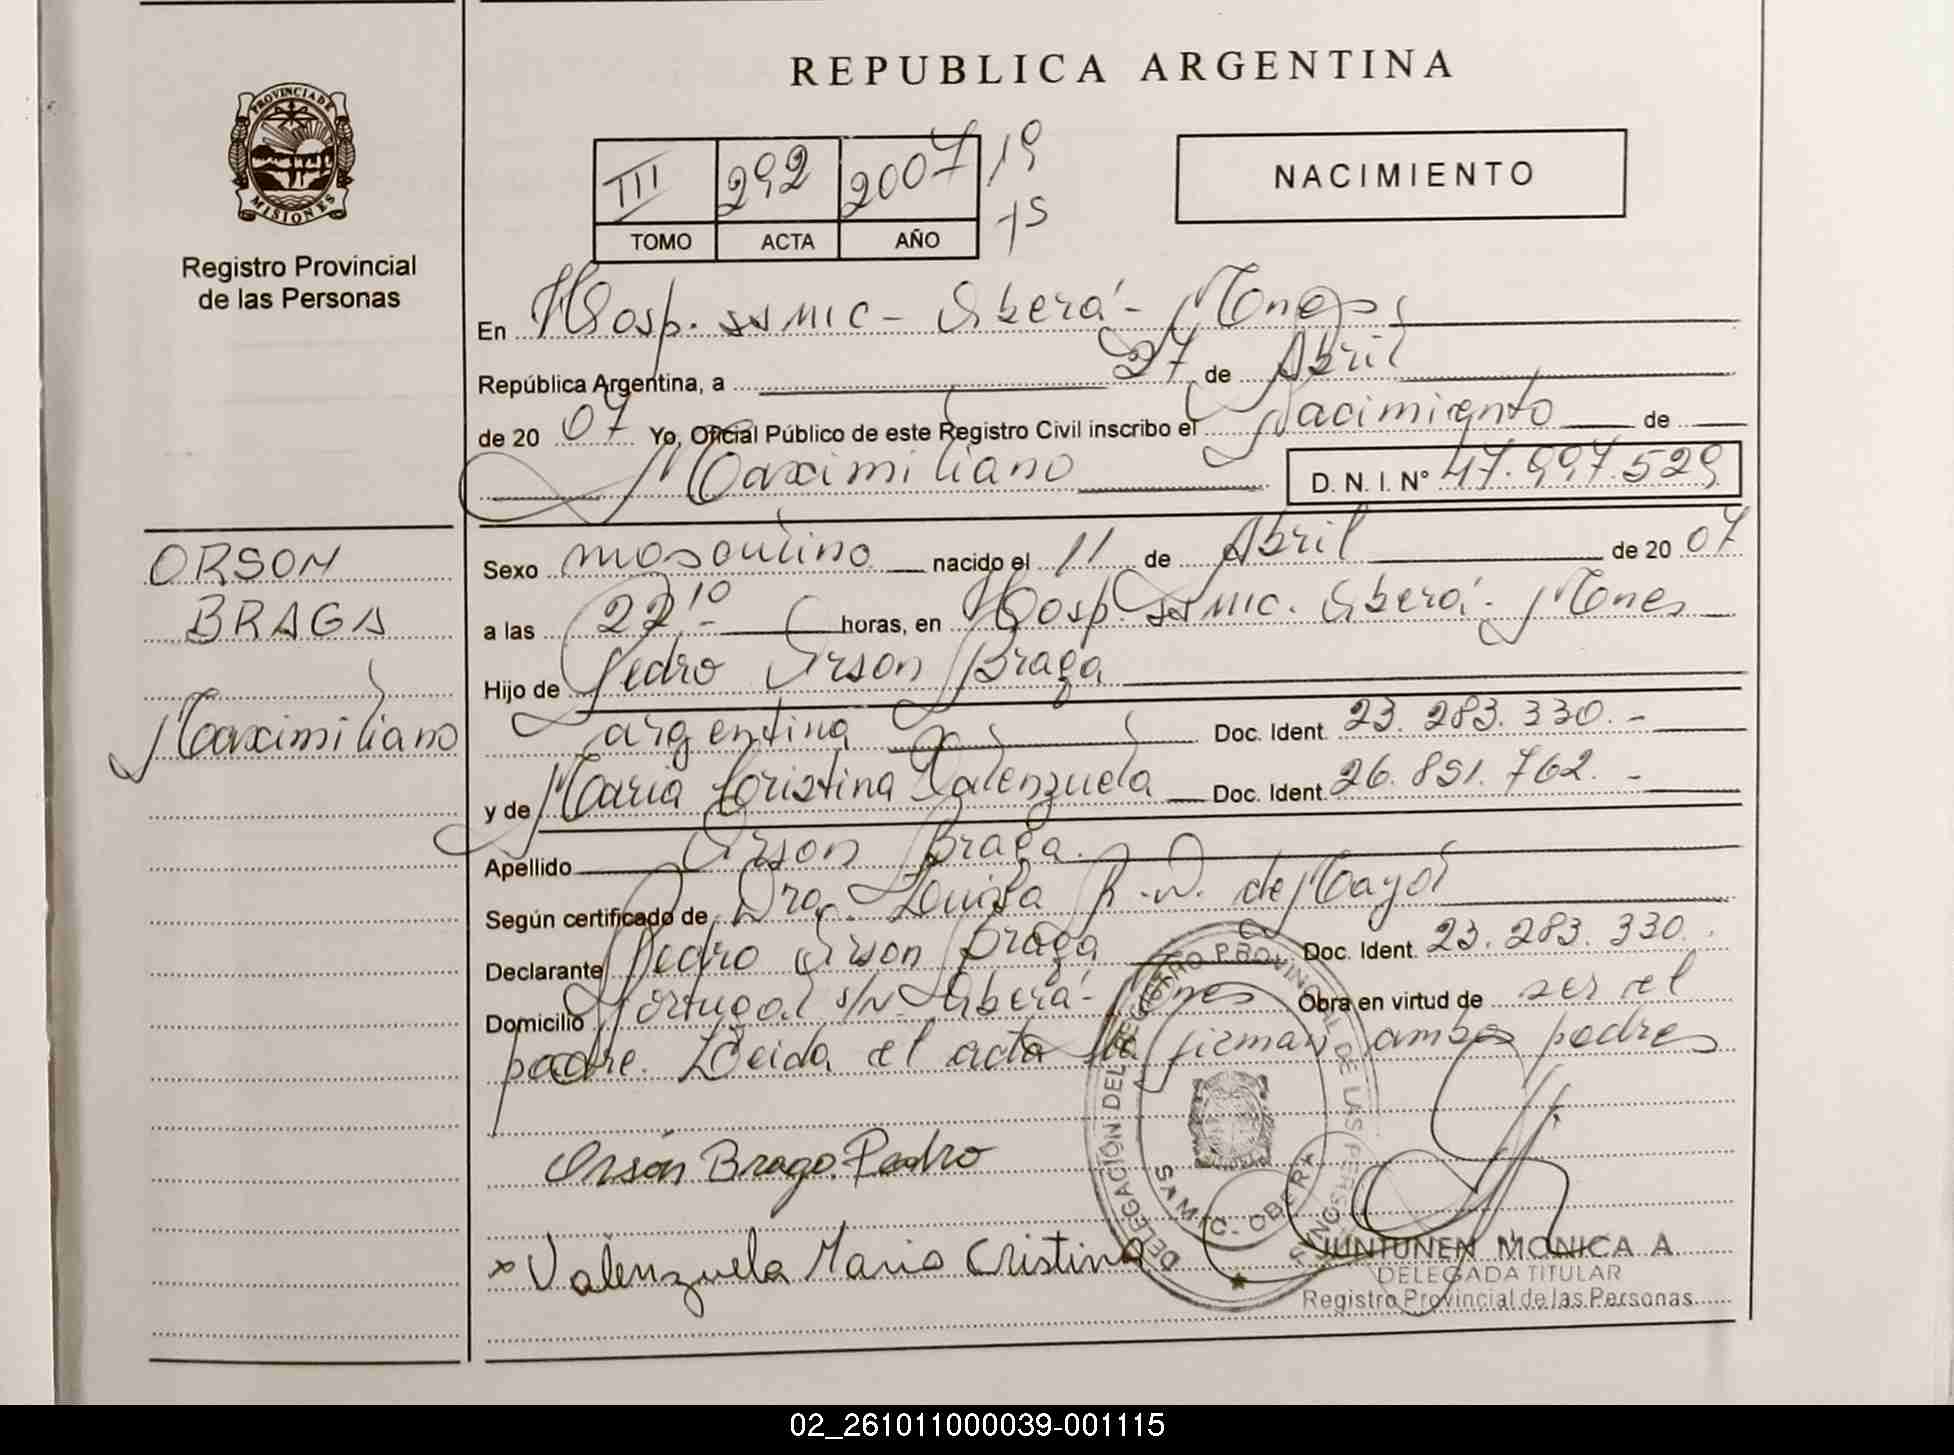 REPUBLICA ARGENTINA
PROVINCIA DE
MISIONES
Registro Provincial
de las Personas
III 292 2007 19
15
TOMO ACTA AÑO
NACIMIENTO
En Hosp. SSMIC - Oberá - Mones
República Argentina, a 27 de Abril
de 20 07 Yo, Oficial Público de este Registro Civil inscribo el Nacimiento de
Maximiliano D. N. I. Nº 47.997.529
ORSON
BRAGA
Maximiliano
Sexo masculino nacido el 11 de Abril de 20 07
a las 22,10 horas, en Hosp. SSMIC. Oberá - Mones
Hijo de Pedro Orson Braga
argentina Doc. Ident. 23.283.330.-
y de Maria Cristina Valenzuela Doc. Ident. 26.891.762.-
Apellido Orson Braga.
Según certificado de Dra. Luisa R. de Mayol
Declarante Pedro Orson Braga Doc. Ident. 23.283.330.
Domicilio Portugal s/Nº Oberá - Mones Obra en virtud de ser el
padre. Leida el acta la firman ambos padres
Orsón Braga. Pedro
x Valenzuela Maria Cristina
DELEGACIÓN DEL REGISTRO PROVINCIAL DE LAS PERSONAS
OBERA
JUNTUNEN MONICA A
DELEGADA TITULAR
Registro Provincial de las Personas
02_261011000039-001115